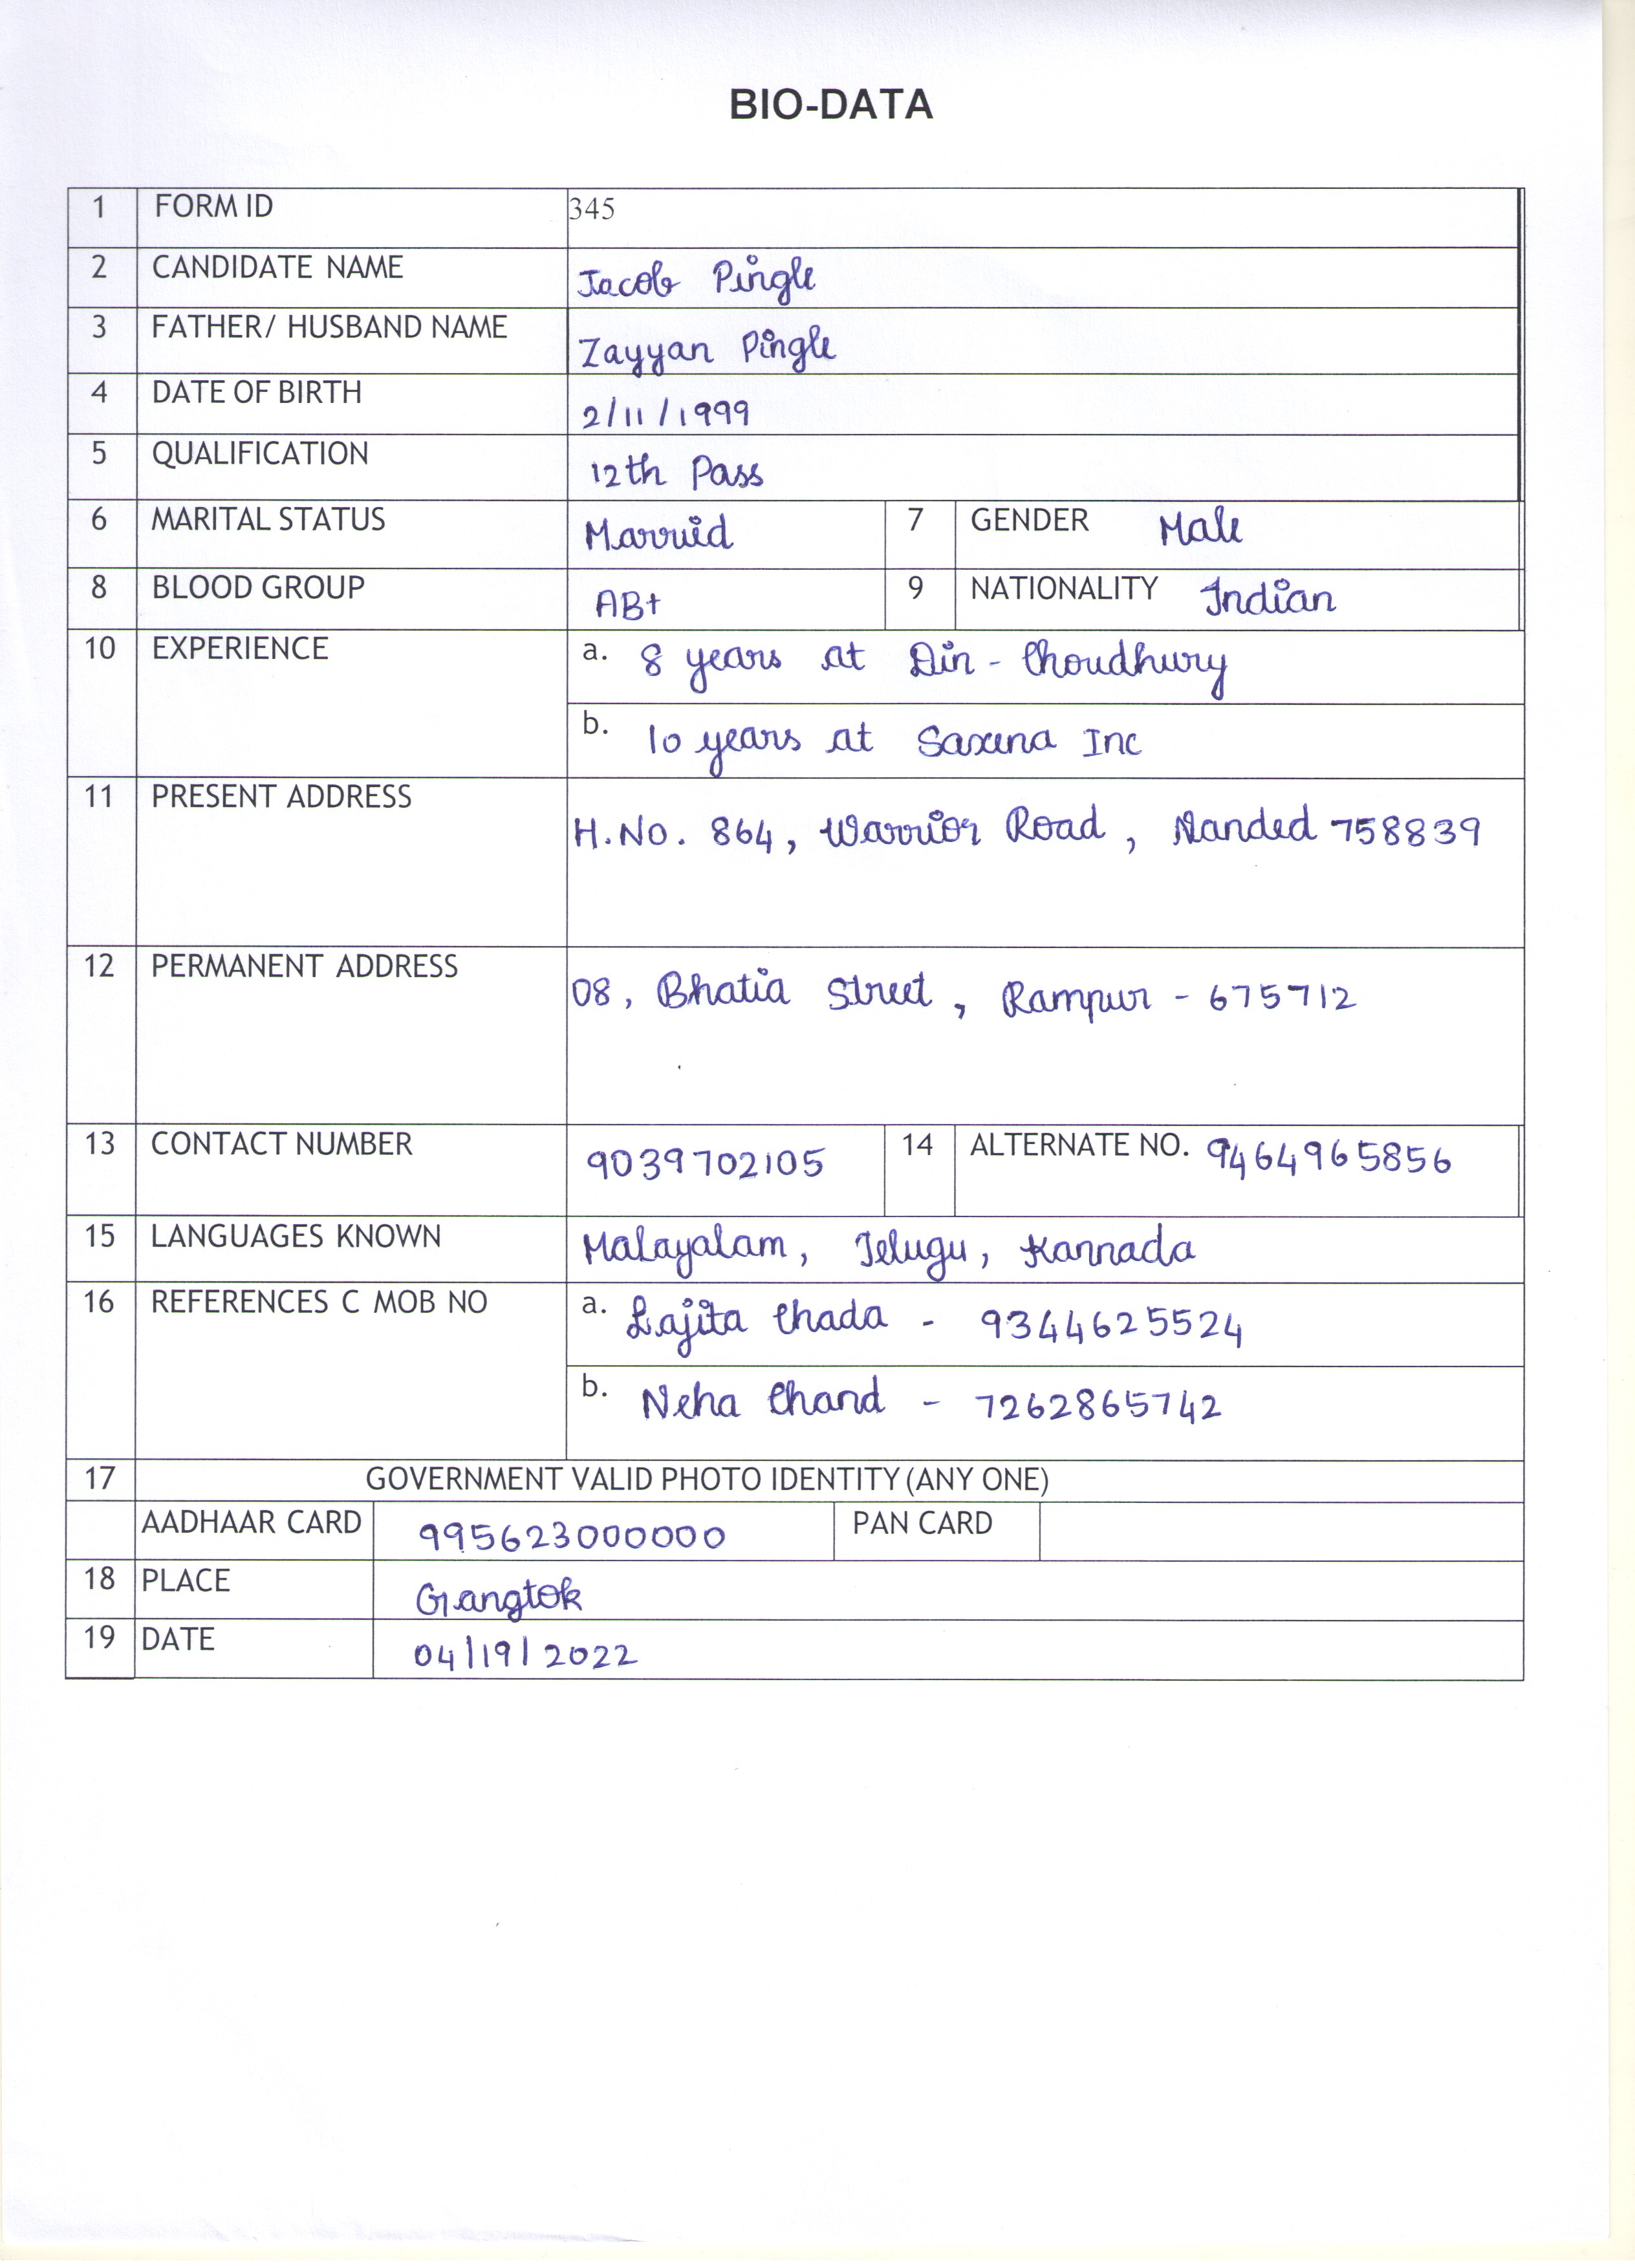 BIO-DATA
1 FORM ID 345
2 CANDIDATE NAME Jacob Pingle
3 FATHER/ HUSBAND NAME Zayyan Pingle
4 DATE OF BIRTH 2/11/1999
5 QUALIFICATION 12th Pass
6 MARITAL STATUS Married 7 GENDER Male
8 BLOOD GROUP AB+ 9 NATIONALITY Indian
10 EXPERIENCE a. 8 years at Din - Choudhury
b. 10 years at Saxena Inc
11 PRESENT ADDRESS H.No. 864, Warrior Road, Nanded 758839
12 PERMANENT ADDRESS 08, Bhatia Street, Rampur - 675712
13 CONTACT NUMBER 9039702105 14 ALTERNATE NO. 9464965856
15 LANGUAGES KNOWN Malayalam, Telugu, Kannada
16 REFERENCES C MOB NO a. Lajita Chada - 9344625524
b. Neha Chand - 7262865742
17 GOVERNMENT VALID PHOTO IDENTITY (ANY ONE)
AADHAAR CARD 995623000000 PAN CARD
18 PLACE Gangtok
19 DATE 04/19/2022